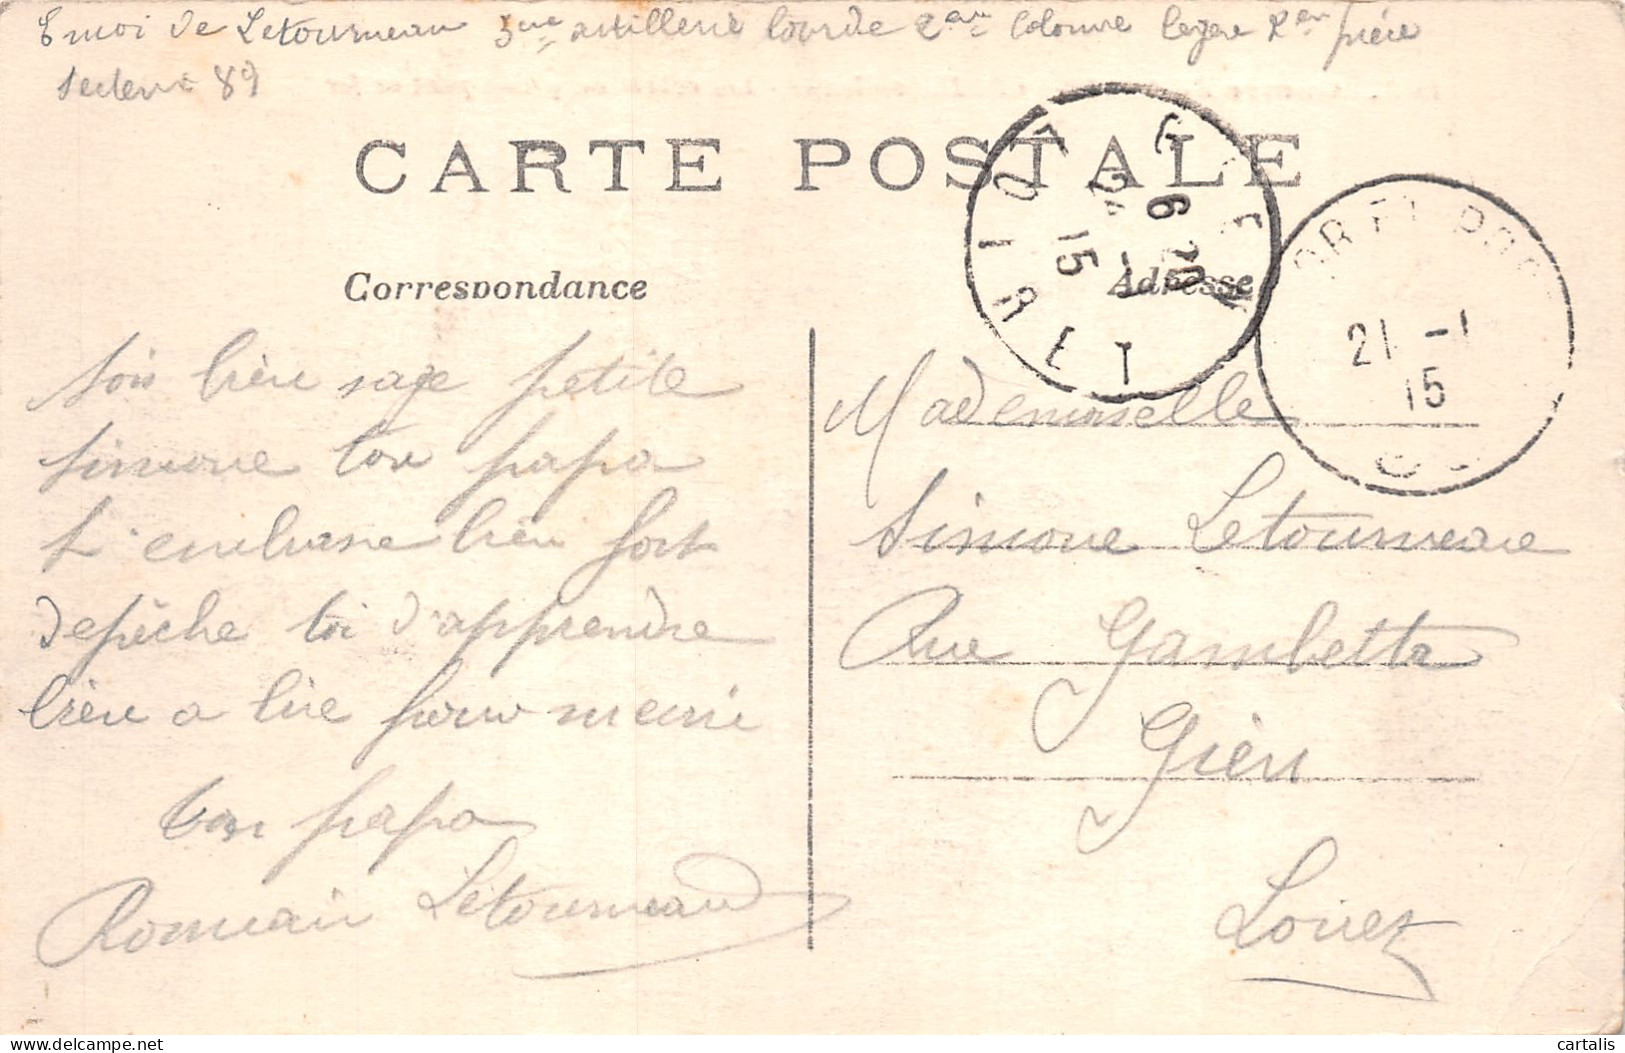 Envoi de Letourneau 3me artillerie lourde 2em Colonne legere 2em piéce
Secteur 89
CARTE POSTALE
Correspondance
Adresse
GIEN
LOIRET
6 20
24 -1
15
21 -1
15
Sois bien sage petite
Simone ton papa
t'embrasse bien fort
depêche toi d'apprendre
bien a lire pour
ton papa
Romain Letourneau
Mademoiselle
Simone Letourneau
Rue Gambetta
Gien
Loiret
cartalis
delcampe.net